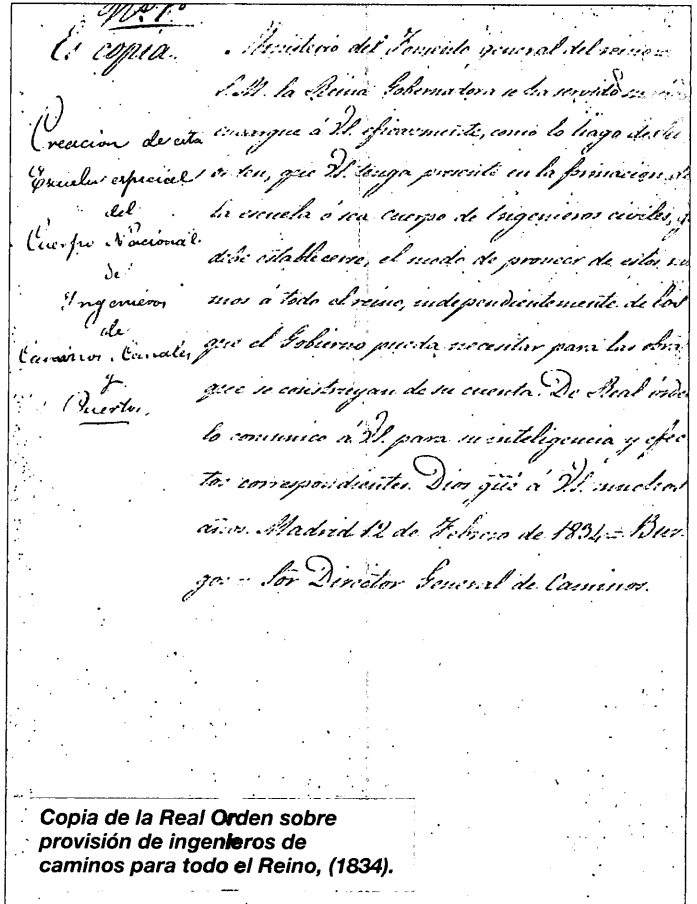 Nº 1º
Es copia.
Creacion de esta
Escuela especial
del
Cuerpo Nacional
de
Ingenieros
de
Caminos, Canales
y
Puertos.
Ministerio del Fomento general del reino
S.M. la Reina Gobernadora se ha servido
encargue á V.S. eficazmente, como lo hago de su
orden, que V.S. tenga presente en la formacion de
la escuela ó sea cuerpo de Ingenieros civiles,
debe establecerse, el modo de proveer de estos
mos á todo el reino, independientemente de los
que el Gobierno pueda necesitar para las obra
que se construyan de su cuenta. De Real orde
lo comunico á V.S. para su inteligencia y efec
tos correspondientes. Dios gue á V.S. muchos
años. Madrid 12 de Febrero de 1834 = Bur
gos = Sor Director General de Caminos.
Copia de la Real Orden sobre
provisión de ingenieros de
caminos para todo el Reino, (1834).